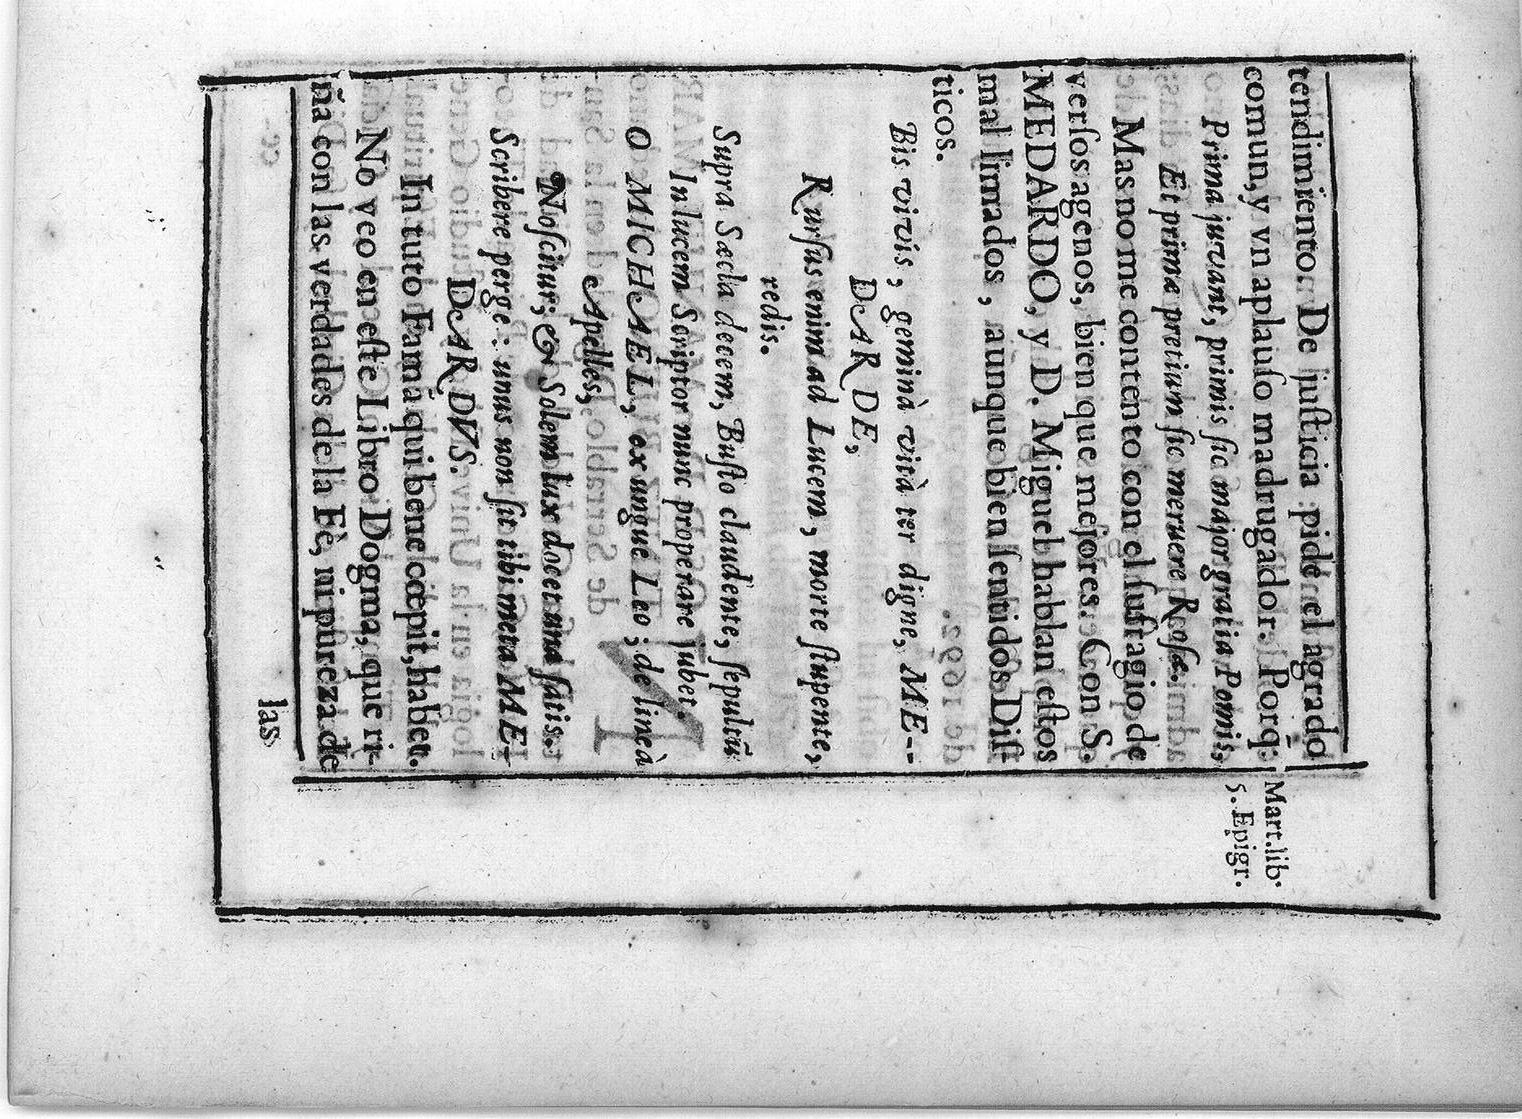 tendimiento. De justicia pide el agrado
comun, y vn aplauſo madrugador: Porq̃:
Prima juvant, primis ſic major gratia Pomis,
Et prima pretium ſic meruere Roſæ.
Mart. lib.
5. Epigr.
Mas no me contento con el ſufragio de
verſos agenos, bien que mejores: Con S.
MEDARDO, y D. Miguel hablan eſtos
mal limados, aunque bien ſentidos Diſ-
ticos.
Bis vivis, geminà vità ter digne, ME--
DARDE,
Rurſus enim ad Lucem, morte ſtupente,
redis.
Supra Sæcla decem, Buſto claudente, ſepultũ
In lucem Scriptor nunc properare jubet.
O MICHAEL, ex ungue Leo; de lineà
Apelles,
Noſcitur; & Solem lux docet una ſatis.
Scribere perge: unus non ſit tibi meta ME-
DARDVS.
In tuto Famã qui bene cœpit, habet.
No veo en eſte Libro Dogma, que ri-
ña con las verdades de la Fè, ni pureza de
las